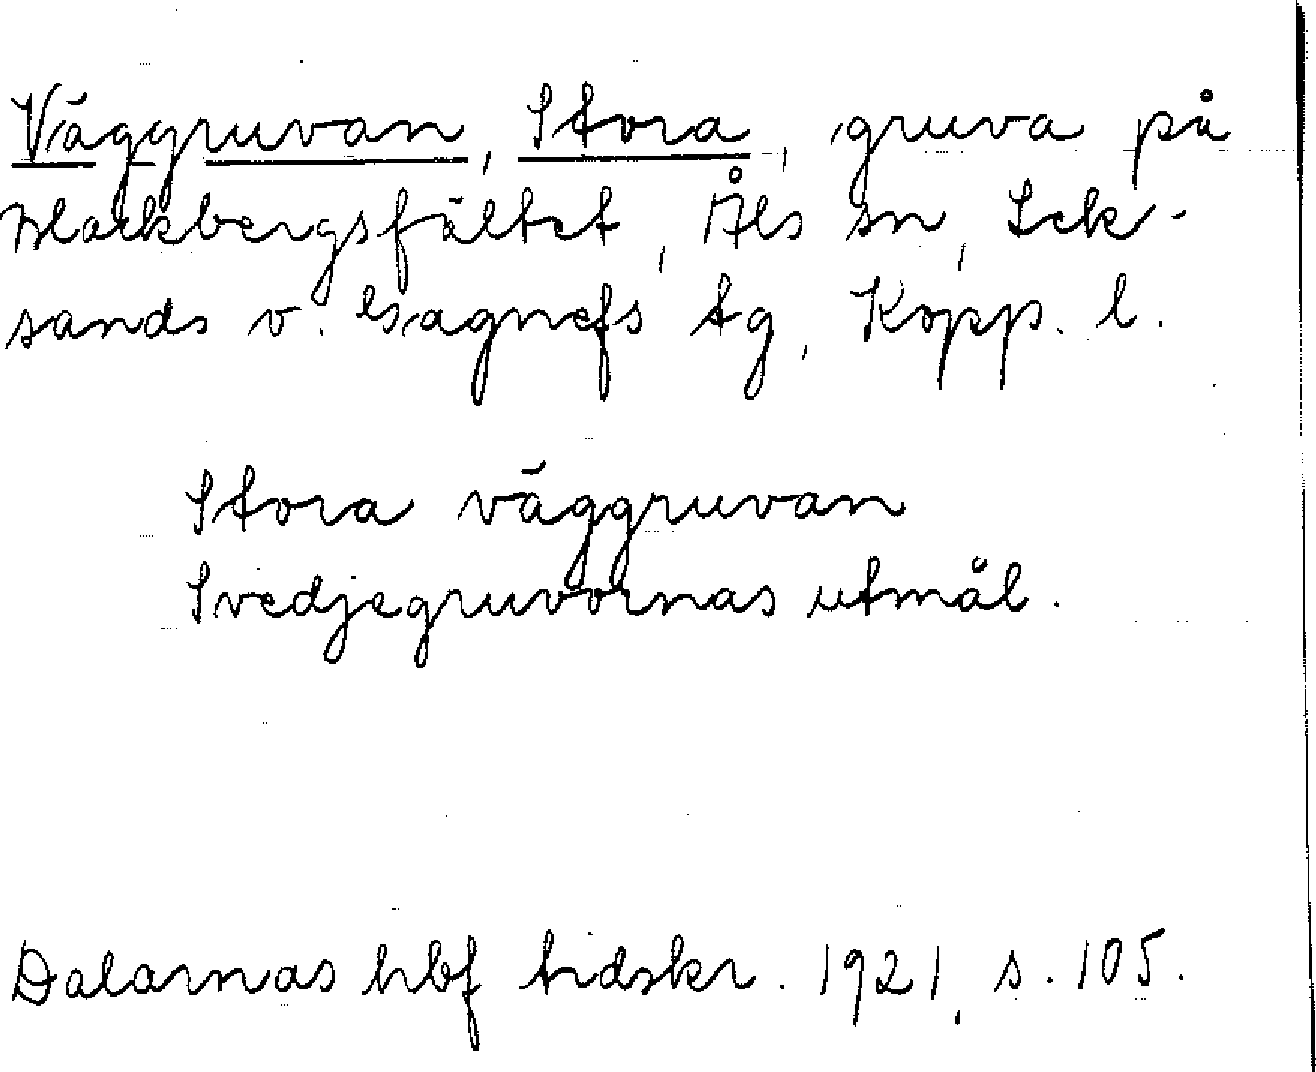 Väggruvan, Stora, gruva på
Blackbergsfältet, Åls sn, Lek-
sands o. Gagnefs tg, Kopp. l.
Stora väggruvan
Svedjegruvornas utmål.
Dalarnas hbf tidskr. 1921, s. 105.